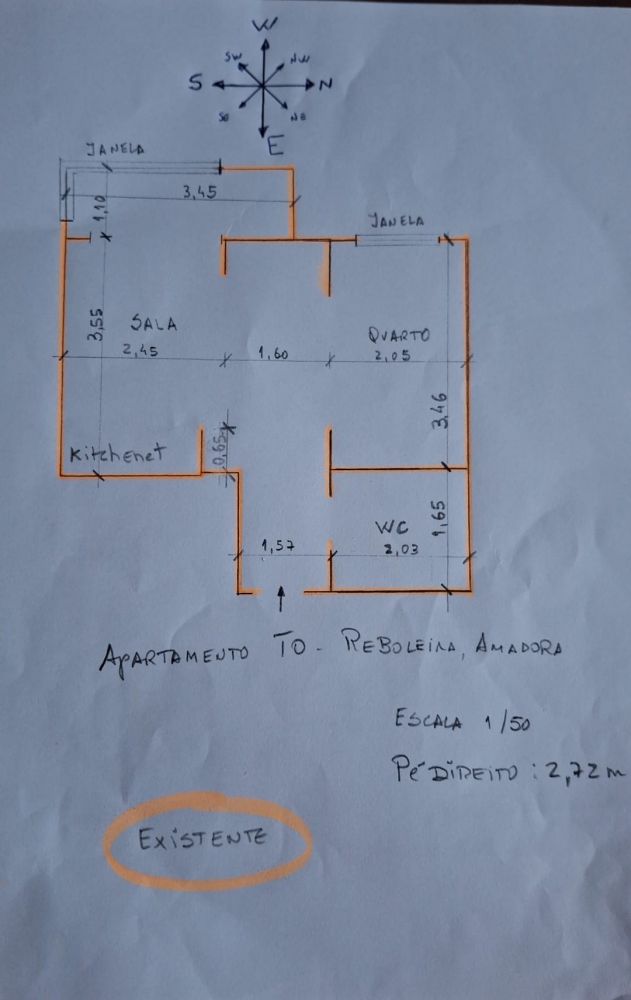 W
SW
NW
S
N
SE
NE
E
JANELA
3,45
1,10
JANELA
SALA
3,55
2,45
1,60
QUARTO
2,05
3,46
Kitchenet
0,65
1,65
WC
1,57
2,03
APARTAMENTO TO - REBOLEIRA, AMADORA
ESCALA 1/50
PÉ DIREITO : 2,72 m
EXISTENTE